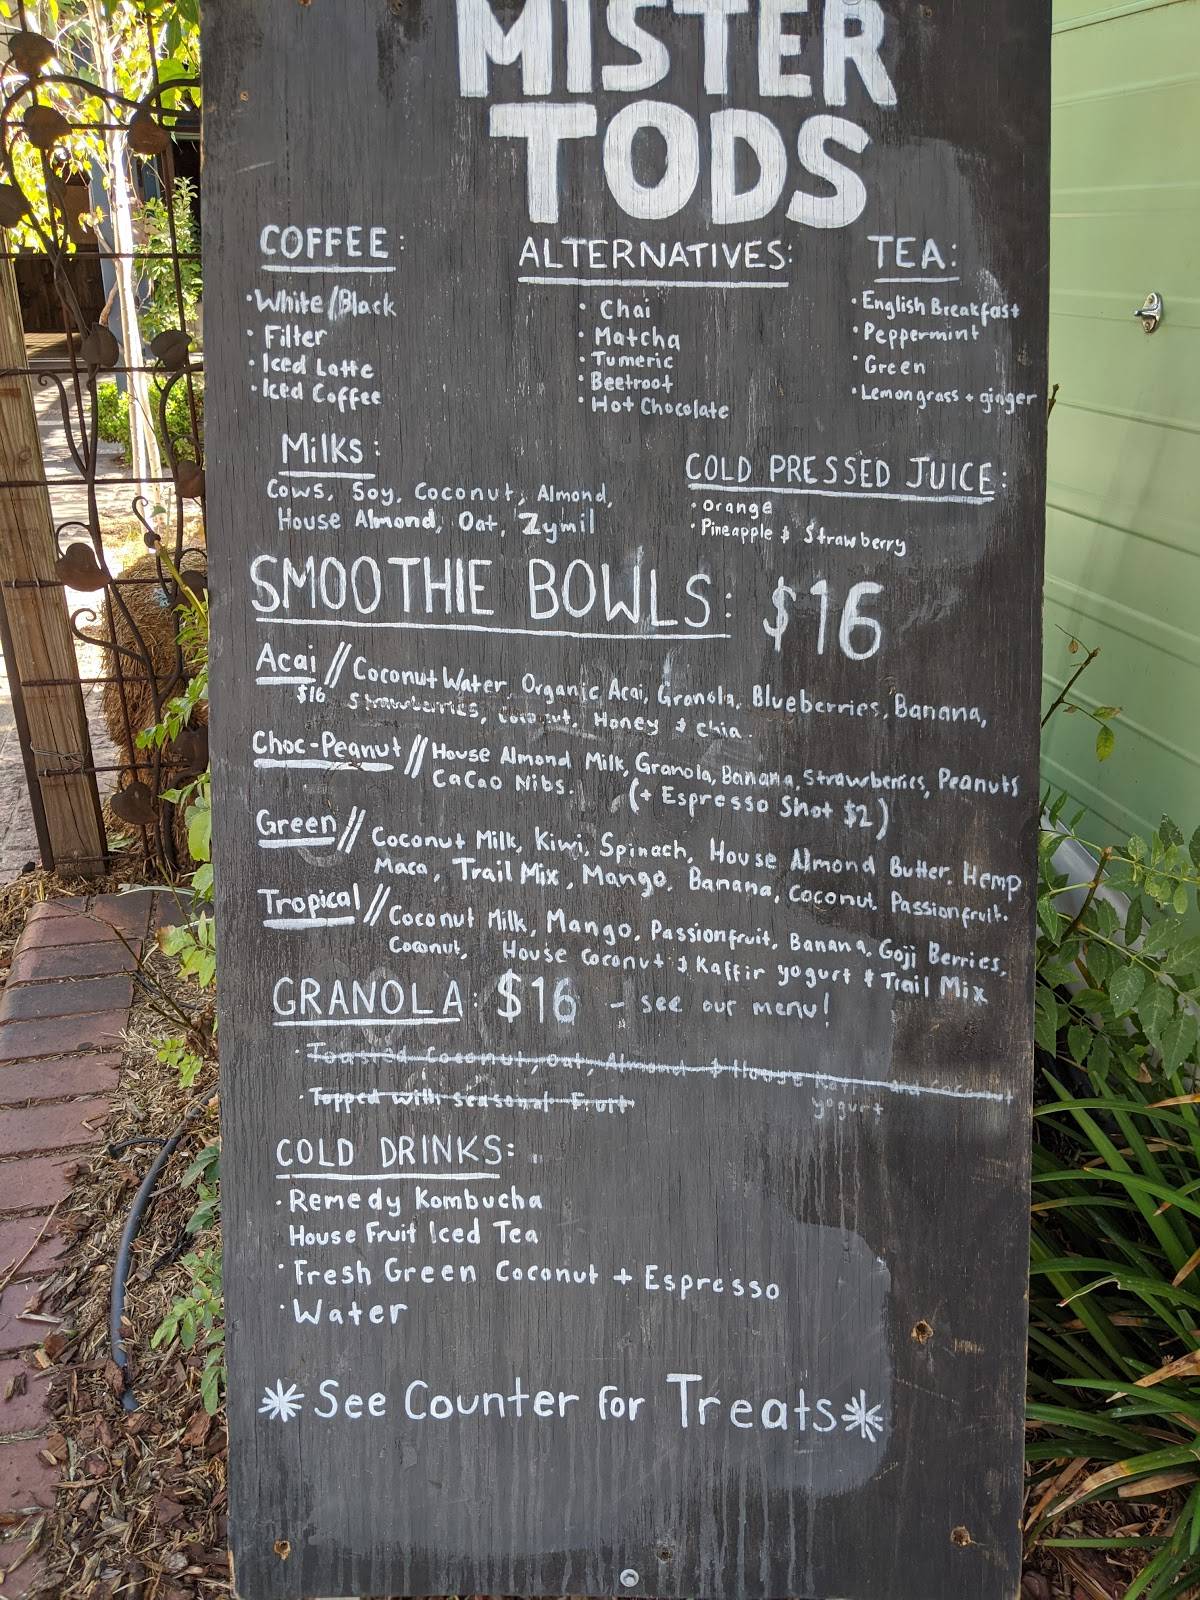 MISTER
TODS
COFFEE:
· White/Black
· Filter
· Iced Latte
· Iced Coffee
ALTERNATIVES:
· Chai
· Matcha
· Tumeric
· Beetroot
· Hot Chocolate
TEA:
· English Breakfast
· Peppermint
· Green
· Lemongrass + ginger
Milks:
Cows, Soy, Coconut, Almond,
House Almond, Oat, Zymil
COLD PRESSED JUICE:
· Orange
· Pineapple & Strawberry
SMOOTHIE BOWLS: $16
Acai // Coconut Water, Organic Acai, Granola, Blueberries, Banana,
$16 Strawberries, Coconut, Honey & Chia.
Choc-Peanut // House Almond Milk, Granola, Banana, Strawberries, Peanuts
CaCao Nibs. (+ Espresso Shot $2)
Green // Coconut Milk, Kiwi, Spinach, House Almond Butter, Hemp
Maca, Trail Mix, Mango, Banana, Coconut. Passionfruit.
Tropical // Coconut Milk, Mango, Passionfruit, Banana, Goji Berries,
Coconut, House Coconut & Kaffir yogurt & Trail Mix
GRANOLA: $16 - see our menu!
· Toasted Coconut, Oat, Almond & House Kaffir and Coconut
yogurt
· Topped with seasonal Fruit
COLD DRINKS:
· Remedy Kombucha
House Fruit Iced Tea
· Fresh Green Coconut + Espresso
· Water
* See Counter for Treats *